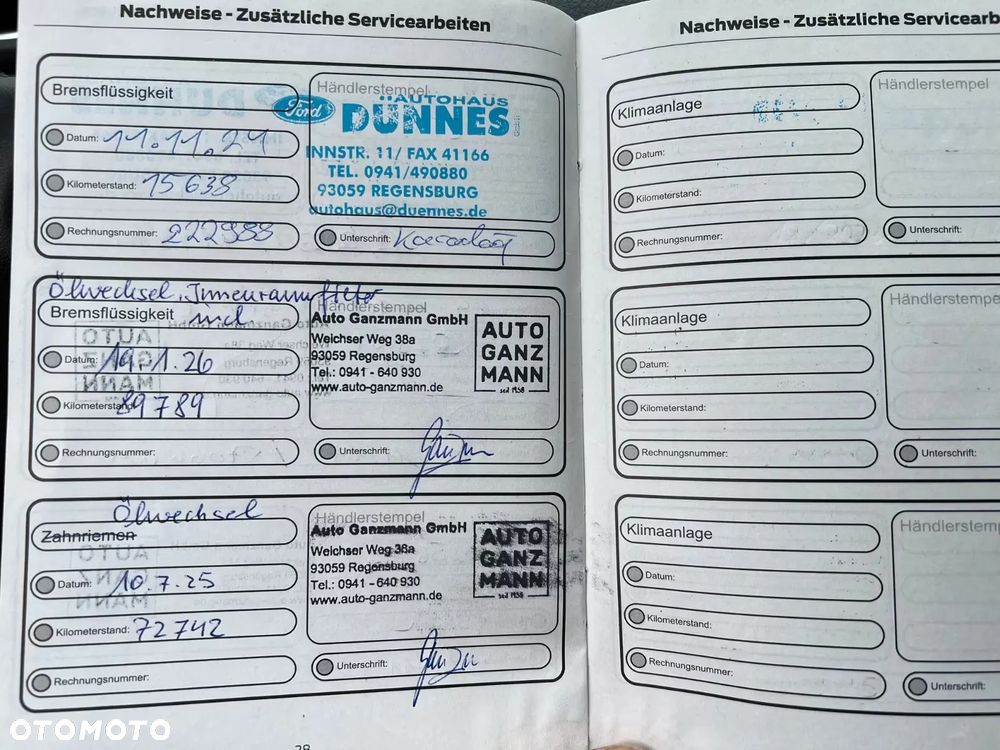 Nachweise - Zusätzliche Servicearbeiten
Bremsflüssigkeit
Datum: 11.11.21
Kilometerstand: 15638
Rechnungsnummer: 222988
Händlerstempel
Ford
AUTOHAUS
DÜNNES
INNSTR. 11/ FAX 41166
TEL. 0941/490880
93059 REGENSBURG
autohaus@duennes.de
Unterschrift:
Ölwechsel, Innenraumfilter
Bremsflüssigkeit
Datum: 19.1.26
Kilometerstand: 89789
Rechnungsnummer:
Händlerstempel
Auto Ganzmann GmbH
Weichser Weg 38a
93059 Regensburg
Tel.: 0941 - 640 930
www.auto-ganzmann.de
AUTO
GANZ
MANN
seit 1958
Unterschrift:
Ölwechsel
Zahnriemen
Datum: 10.7.25
Kilometerstand: 72742
Rechnungsnummer:
Händlerstempel
Auto Ganzmann GmbH
Weichser Weg 38a
93059 Regensburg
Tel.: 0941 - 640 930
www.auto-ganzmann.de
AUTO
GANZ
MANN
seit 1958
Unterschrift:
28
Nachweise - Zusätzliche Servicearb
Klimaanlage
Datum:
Kilometerstand:
Rechnungsnummer:
Händlerstempel
Unterschrift:
Klimaanlage
Datum:
Kilometerstand:
Rechnungsnummer:
Händlerstempe
Unterschrift:
Klimaanlage
Datum:
Kilometerstand:
Rechnungsnummer:
Händlerstem
Unterschrift:
OTOMOTO